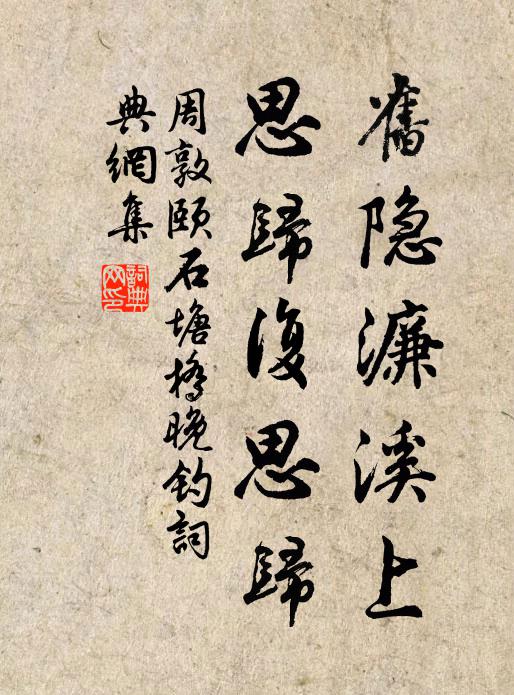 舊隐濂溪上
思歸復思歸
周敦頤石塘橋晚釣詞
典網集
詞典網印